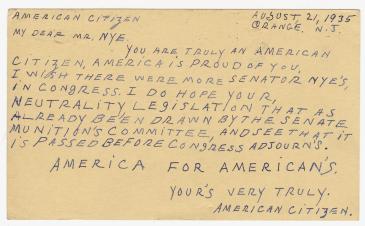 AMERICAN CITIZEN
AUGUST 21, 1935
ORANGE. N.J.
MY DEAR MR. NYE.
YOU ARE TRULY AN AMERICAN
CITIZEN, AMERICA IS PROUD OF YOU,
I WISH THERE WERE MORE SENATOR NYE'S,
IN CONGRESS. I DO HOPE YOUR,
NEUTRALITY LEGISLATION THAT AS
ALREADY BEEN DRAWN BY THE SENATE
MUNITION'S COMMITTEE, AND SEE THAT IT
IS PASSED BEFORE CONGRESS ADJOURN'S.
AMERICA FOR AMERICAN'S.
YOUR'S VERY TRULY.
AMERICAN CITIZEN.